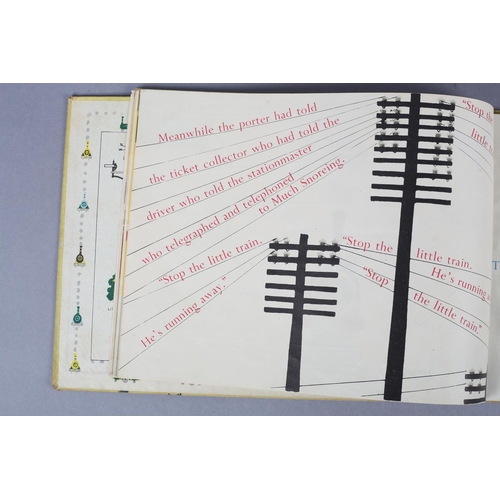 Meanwhile the porter had told
the ticket collector who had told the
driver who told the stationmaster
who telegraphed and telephoned
to Much Snoreing.
"Stop the little train.
He's running away."
"Stop the little train.
He's running away."
"Stop the little train."
"Stop the
little